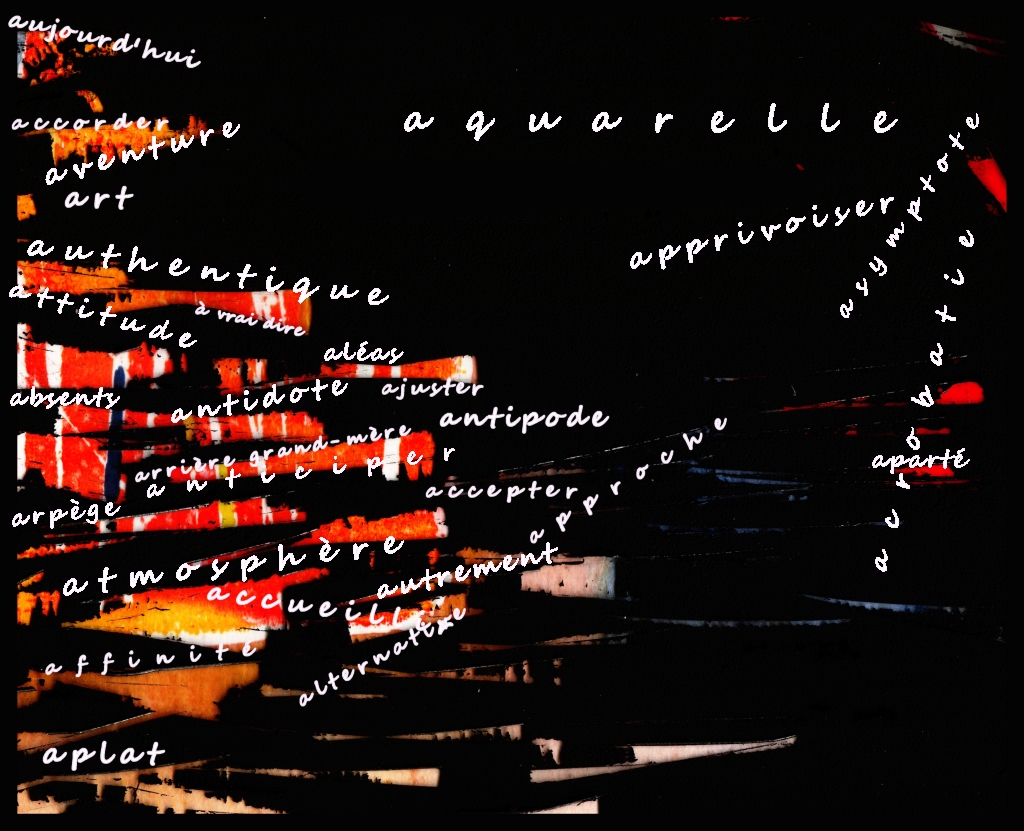 aujourd'hui
accorder
aventure
aquarelle
art
asymptote
apprivoiser
authentique
acrobatie
attitude
à vrai dire
aléas
ajuster
absents
antidote
antipode
arrière grand-mère
anticiper
approche
aparté
accepter
arpège
atmosphère
autrement
accueillir
alternative
affinité
aplat